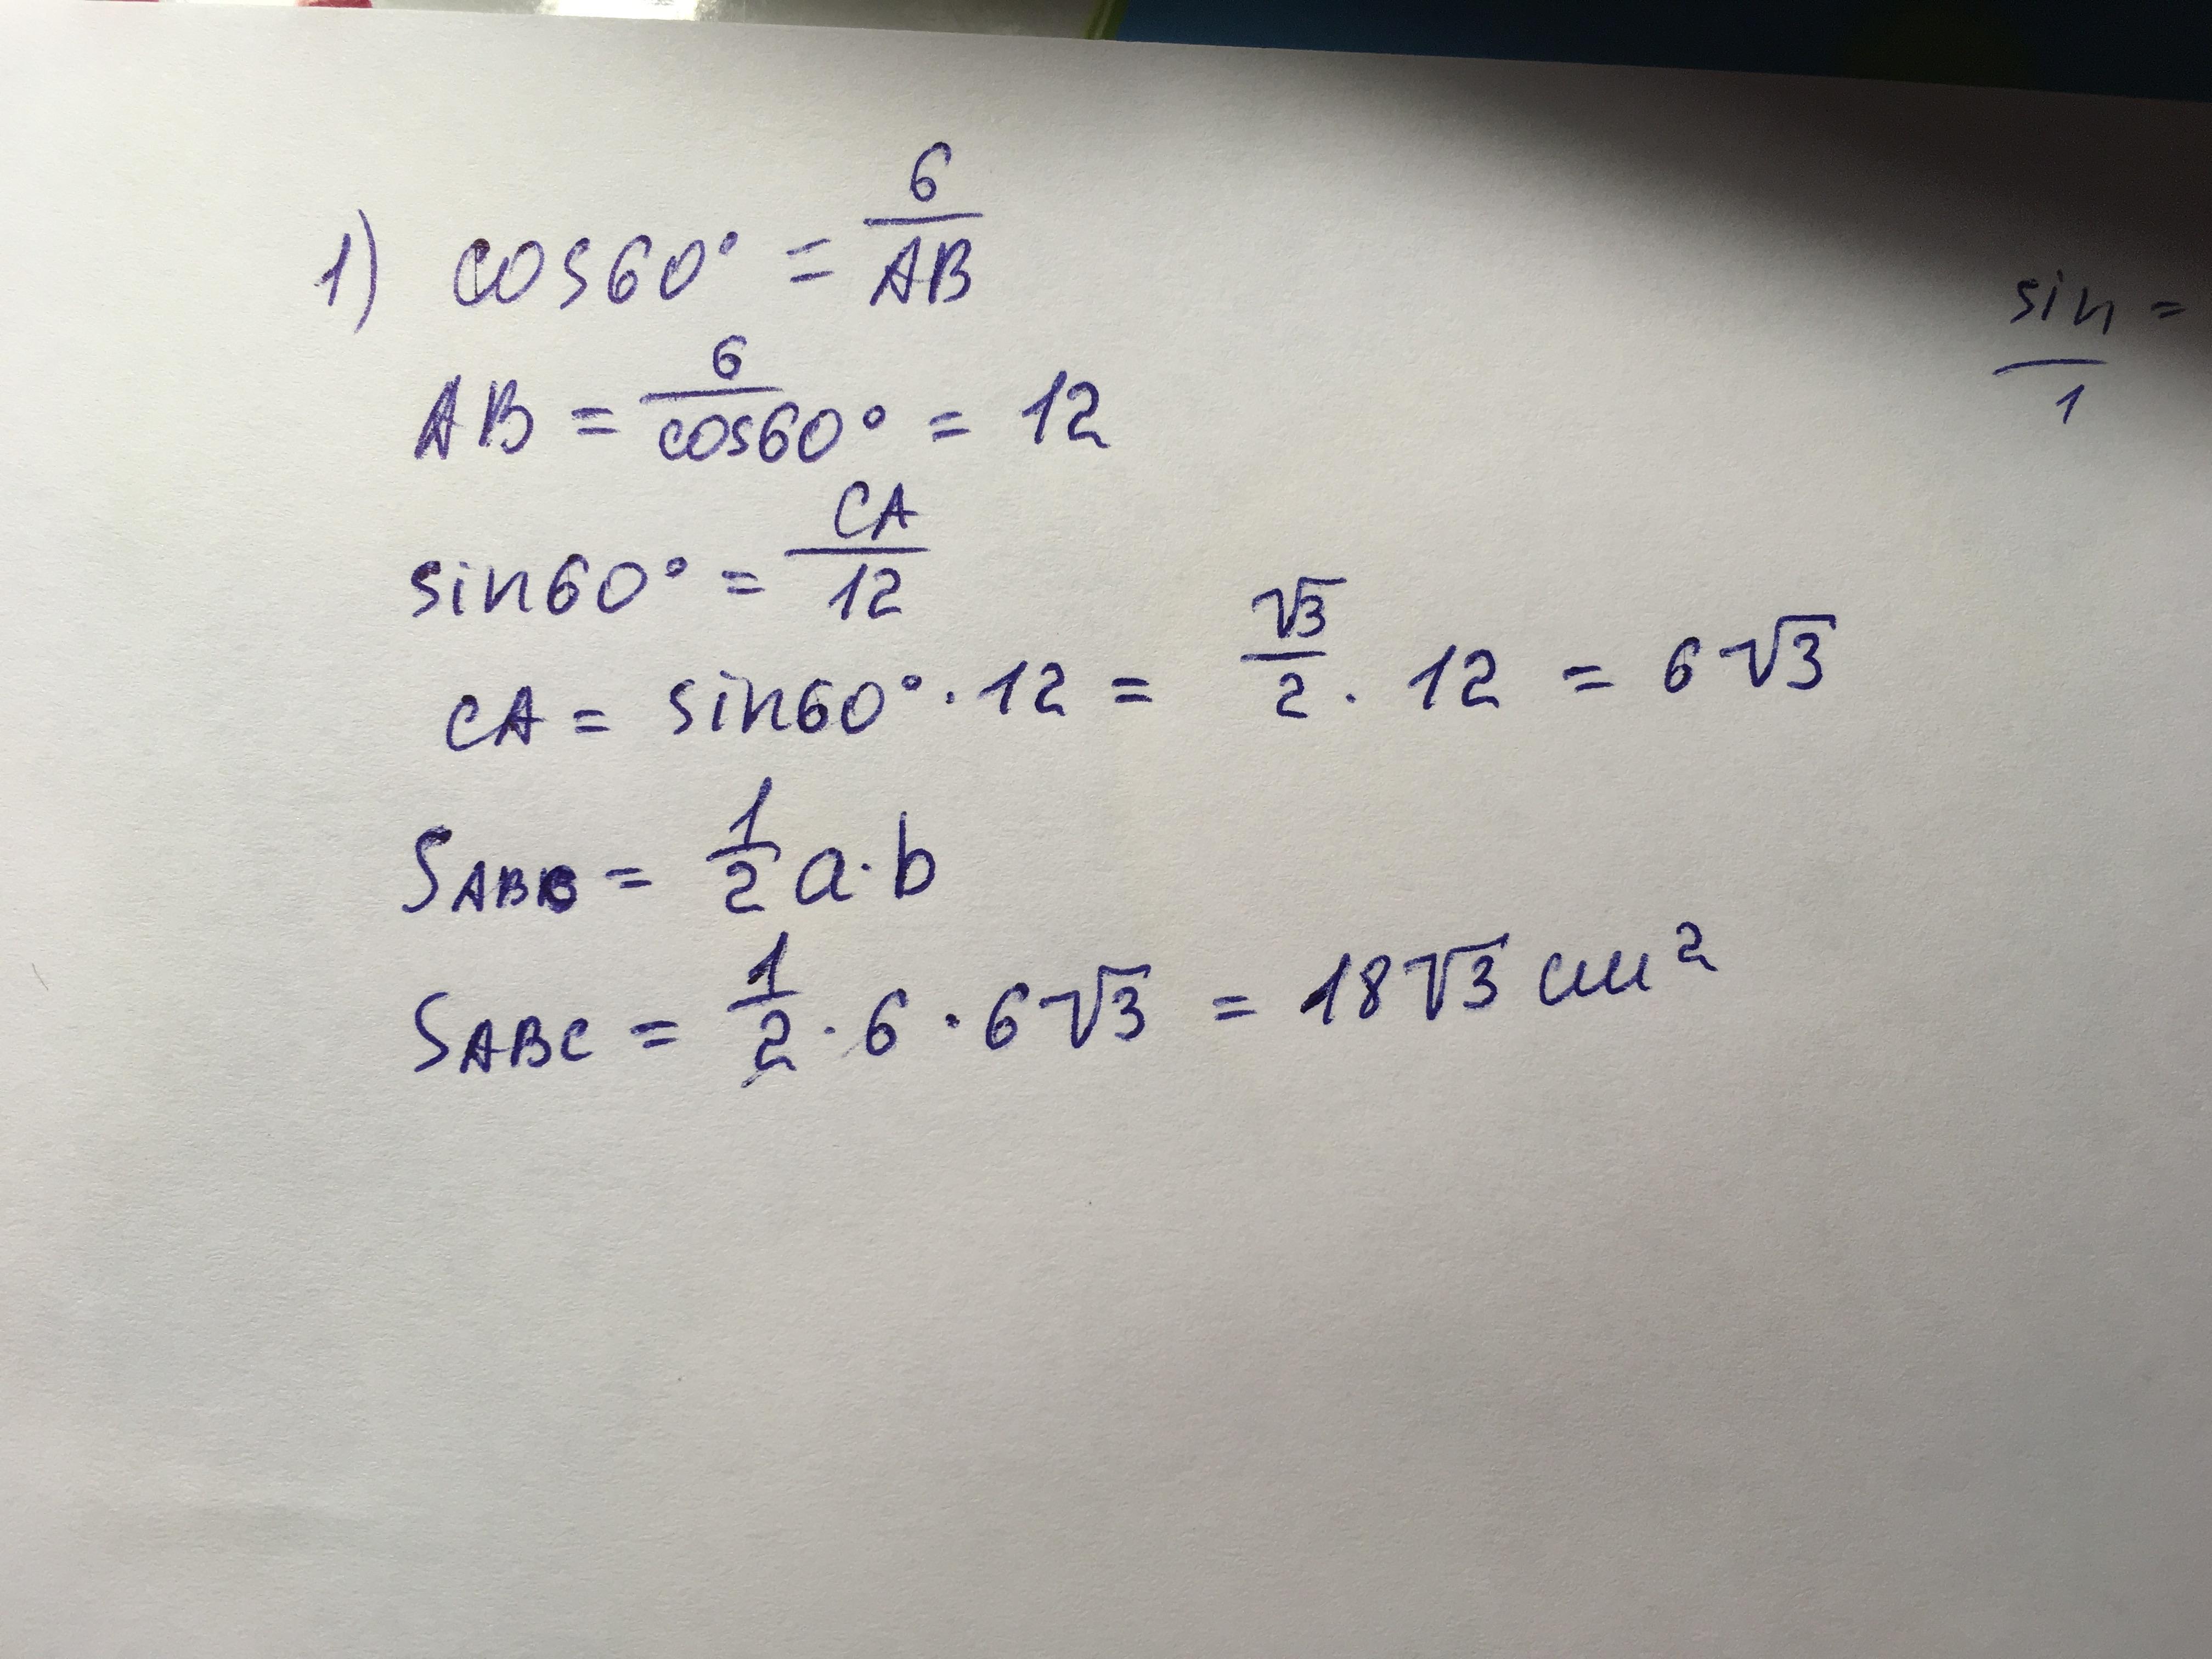 1) cos60° = 6/AB
AB = 6/cos60° = 12
sin60° = CA/12
CA = sin60° · 12 = √3/2 · 12 = 6√3
S ABC = 1/2 a · b
S ABC = 1/2 · 6 · 6√3 = 18√3 см²
sin =
1